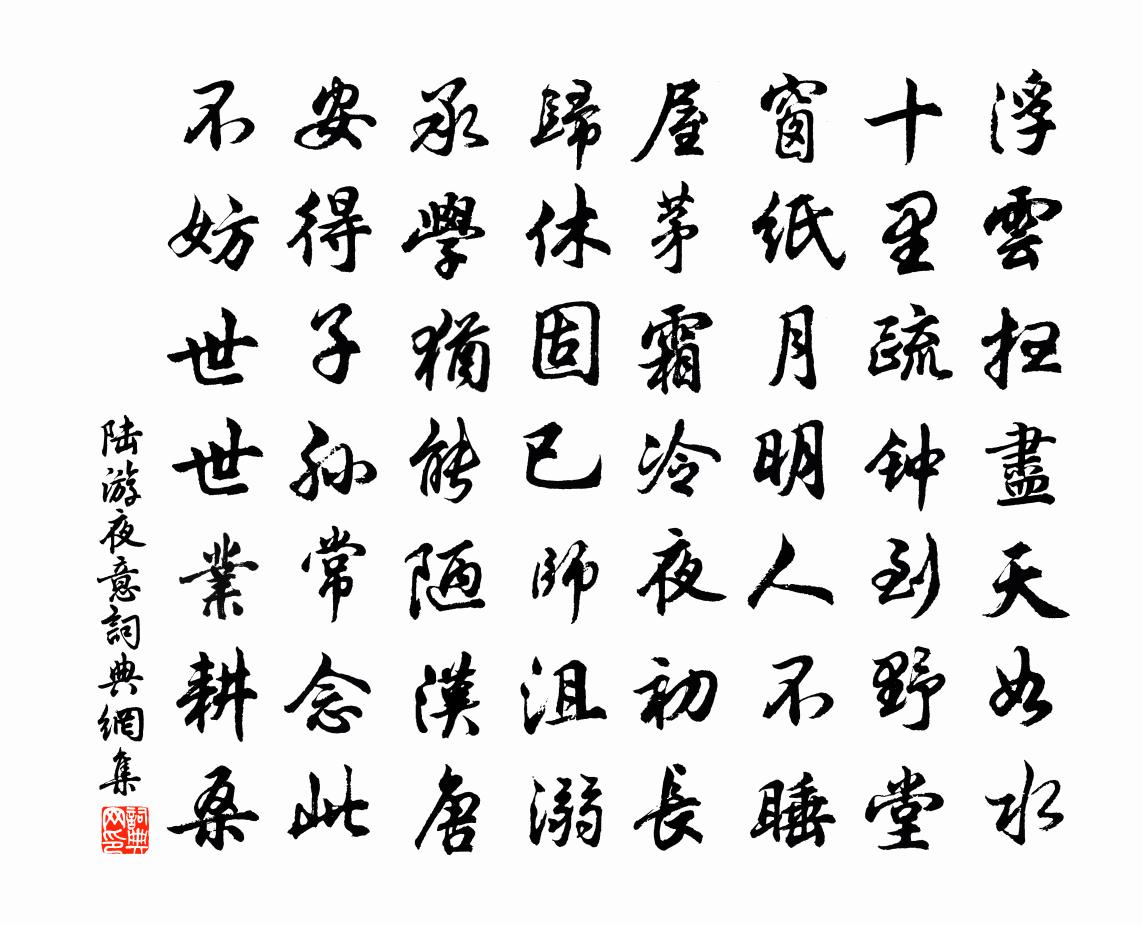 浮雲扫盡天如水
十里疏钟到野堂
窗紙月明人不睡
屋茅霜冷夜初長
歸休固已師沮溺
承學猶能陋漢唐
安得子孫常念此
不妨世世業耕桑
陆游夜意詞典網集
詞典网印